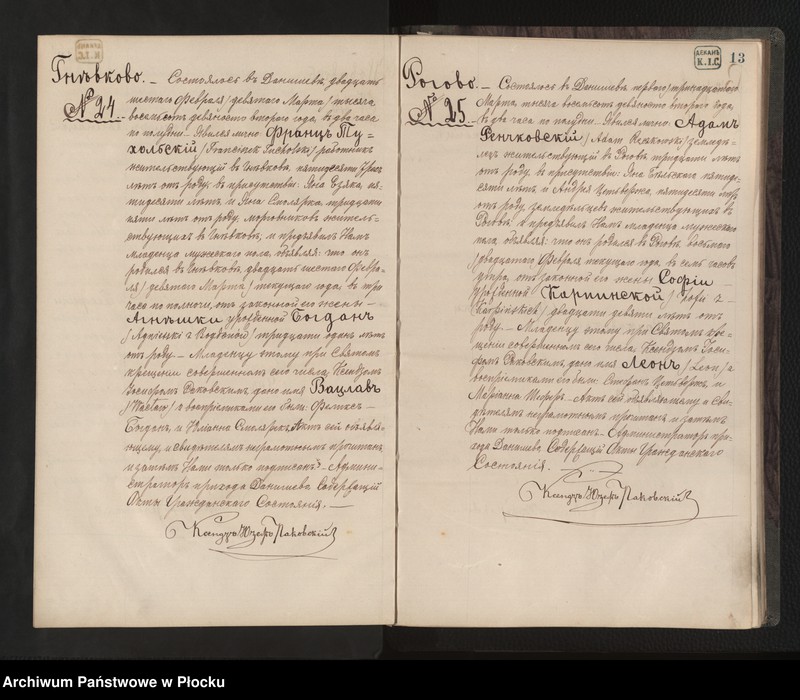 Гнѣвково. — Состоялось въ Данишевѣ двадцать
№ 24
шестого Февраля / девятаго Марта / тысяча
восемьсотъ девяносто второго года, въ два часа
по полудни. Явился лично Францъ Ту-
хольскій / Franciszek Tucholski / работникъ
жительствующій въ Гнѣвковѣ, пятидесяти
лѣтъ отъ роду, въ присутствіи Яна пя-
тидесяти лѣтъ и Яна Столярка, тридцати
пяти лѣтъ отъ роду, житель-
ствующихъ въ Гнѣвковѣ; и предъявилъ Намъ
младенца мужескаго пола, объявляя: что онъ
родился въ Гнѣвковѣ, двадцать шестого Февра-
ля / девятаго Марта / текущаго года, въ три
часа по полночи, отъ законной его жены —
Агнѣшки урожденной Богданъ
/ Agnieszki z Bogdanów / тридцати одинъ лѣтъ
отъ роду. — Младенцу этому при Святомъ
крещеніи совершенномъ сего числа, Ксендзомъ
Іосифомъ Паковскимъ, дано имя Вацлавъ
/ Wacław / а воспріемниками его были: Феликсъ —
Богданъ, и Юліанна Столяркъ. Актъ сей объявля-
ющему, и свидѣтелямъ неграмотнымъ прочитанъ
и затѣмъ Нами только подписанъ. — Админи-
страторъ прихода Данишево Содержащій
Акты Гражданскаго Состоянія. —
Ксендзъ Юзефъ Паковскій
ДЕКАНЪ
К. І. С.
13
Рогово. — Состоялось въ Данишевѣ перваго / тринадцатаго
№ 25
Марта, тысяча восемьсотъ девяносто второго года,
въ два часа по полудни. Явился лично Адамъ
Ренчковскій / Adam Ręczkowski / земледѣ-
лецъ жительствующій въ Роговѣ тридцати лѣтъ
отъ роду, въ присутствіи: Яна Бѣльскаго пятиде-
сяти лѣтъ и Андрея пятидесяти лѣтъ
отъ роду, земледѣльцевъ жительствующихъ въ
Роговѣ; и предъявилъ Намъ младенца мужескаго
пола, объявляя: что онъ родился въ Роговѣ, восьмого
/ двадцатаго Февраля текущаго года, въ семь часовъ
утра, отъ законной его жены Софіи —
урожденной Карпинской / Zofii z
Karpińskich / двадцати девяти лѣтъ отъ
роду. — Младенцу этому при Святомъ кре-
щеніи совершенномъ сего числа, Ксендзомъ Іоси-
фомъ Паковскимъ, дано имя Леонъ / Leon / а
воспріемниками его были: Стефанъ и
Маріанна — Актъ сей объявляющему и сви-
дѣтелямъ неграмотнымъ прочитанъ и затѣмъ
Нами только подписанъ. — Администраторъ при-
хода Данишево Содержащій Акты Гражданскаго
Состоянія. —
Ксендзъ Юзефъ Паковскій
Archiwum Państwowe w Płocku